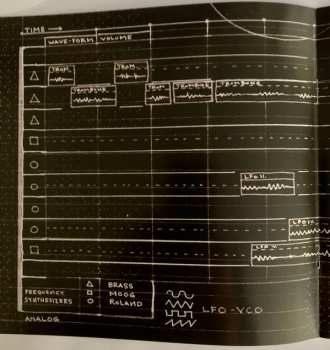 TIME
WAVE-FORM VOLUME
TROM.
TROM.
TROMBONE
TROM
TROMBONE
TROMBONE
LFO II.
LFO IV.
LFO V.
FREQUENCY SYNTHESIZERS
BRASS
MOOG
ROLAND
LFO-VCO
ANALOG